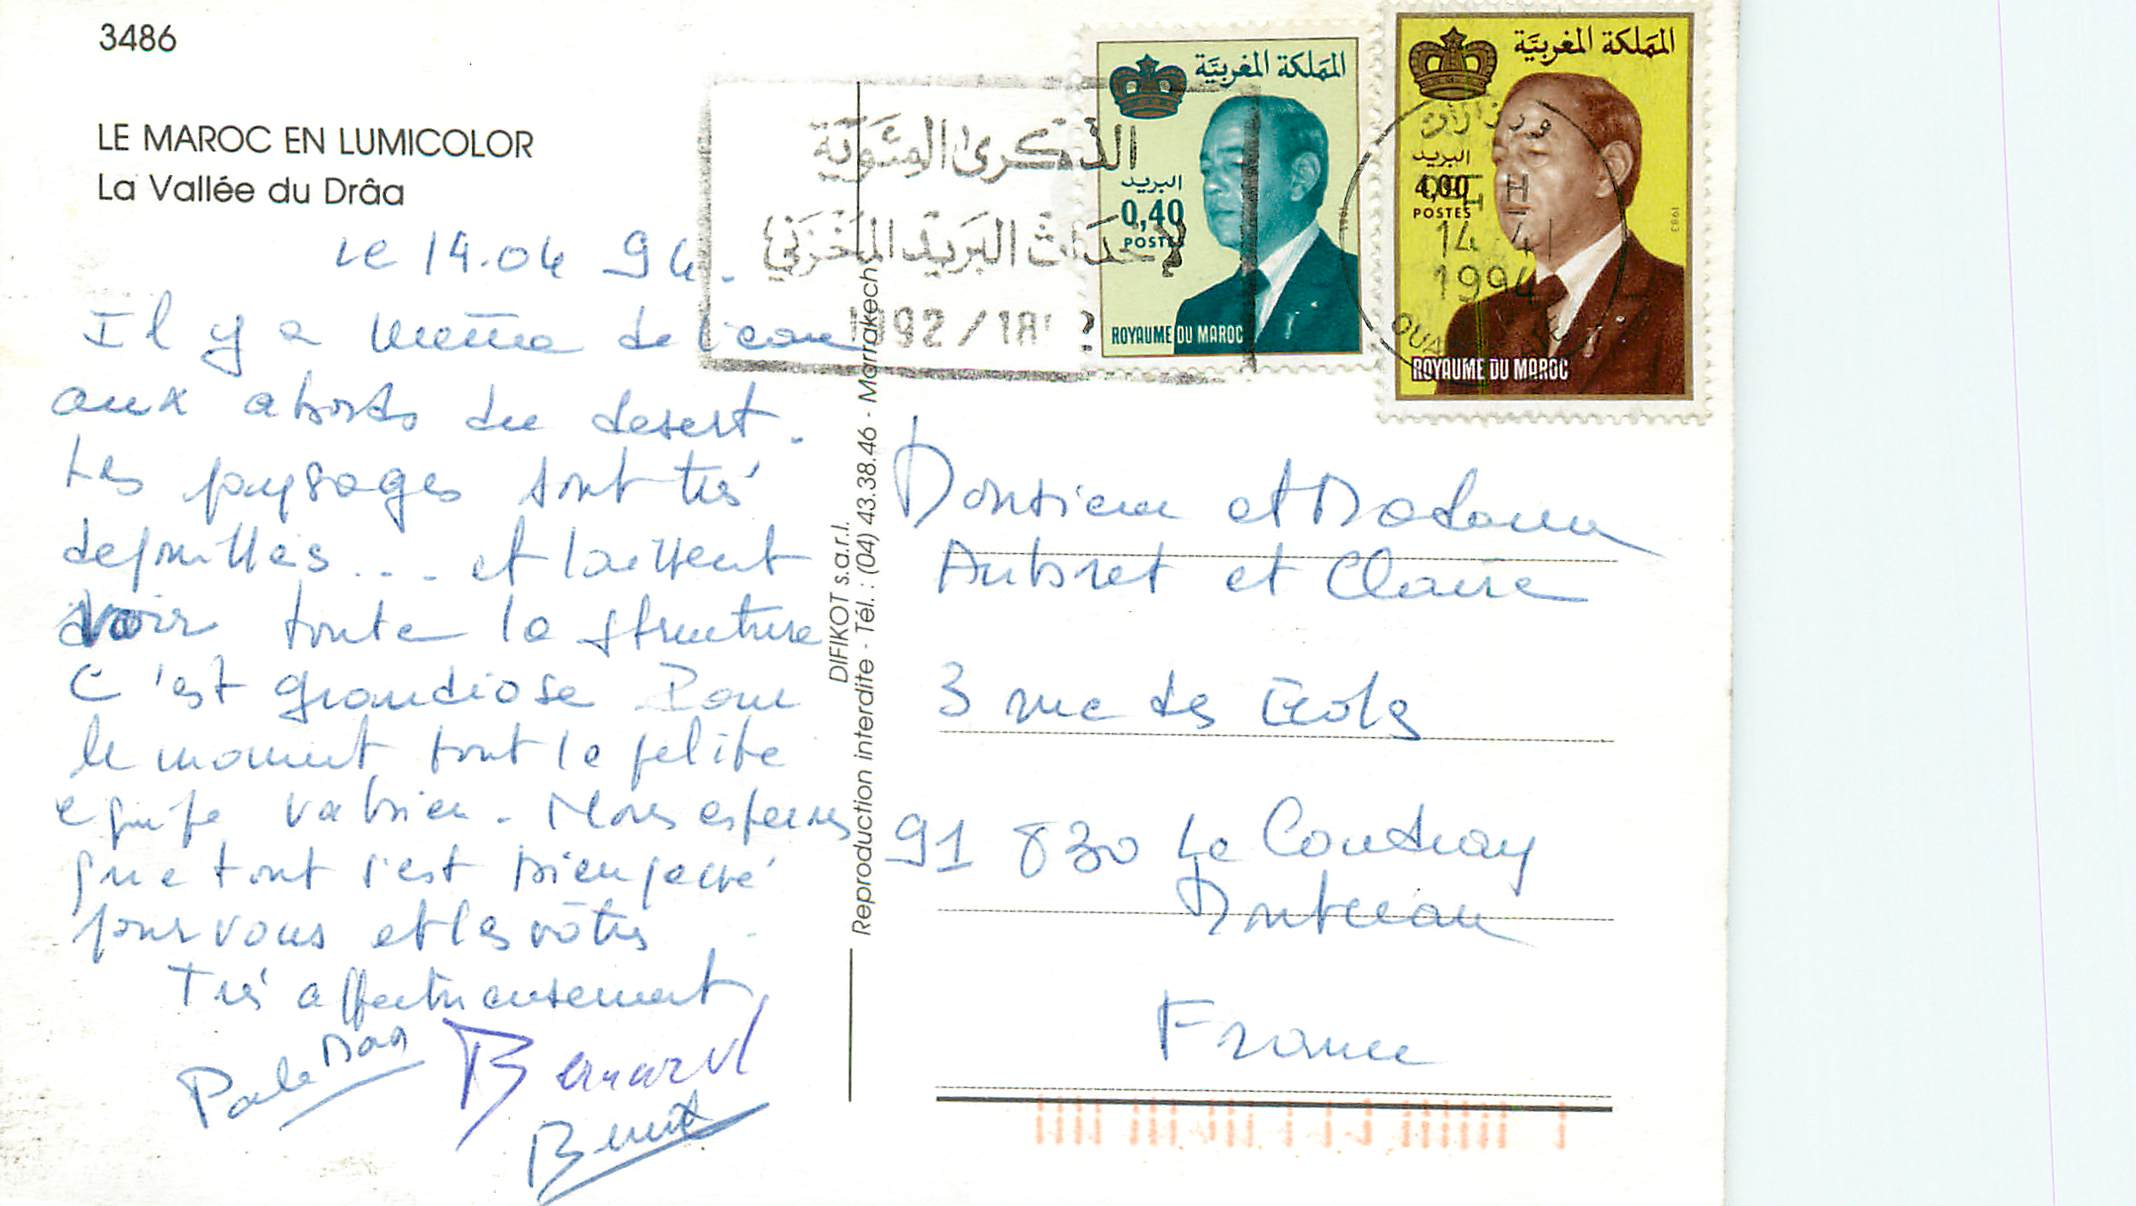 3486
LE MAROC EN LUMICOLOR
La Vallée du Drâa
le 14.04 94.
Il y a même de l'eau
aux abords du desert.
Les paysages sont très
depouillés... et laissent
voir toute la structure
C'est grandiose Pour
le moment tout la petite
equipe va bien. Nous esperons
que tout s'est bien passé
pour vous et les vôtres
Très affectueusement
Bernard
Benoit
DIFIKOT s.a.r.l.
Reproduction interdite - Tél. : (04) 43.38.46 - Marrakech
الذكرى المئوية
لإحداث البريد المخزني
1992/18 2
المملكة المغربية
البريد
0,40
POSTES
ROYAUME DU MAROC
المملكة المغربية
البريد
4,00
POSTES
ROYAUME DU MAROC
1983
14 4
1994
Monsieur et Madame
Aubret et Claire
3 rue des Ecoles
91 830 Le Coudray
Montceau
France